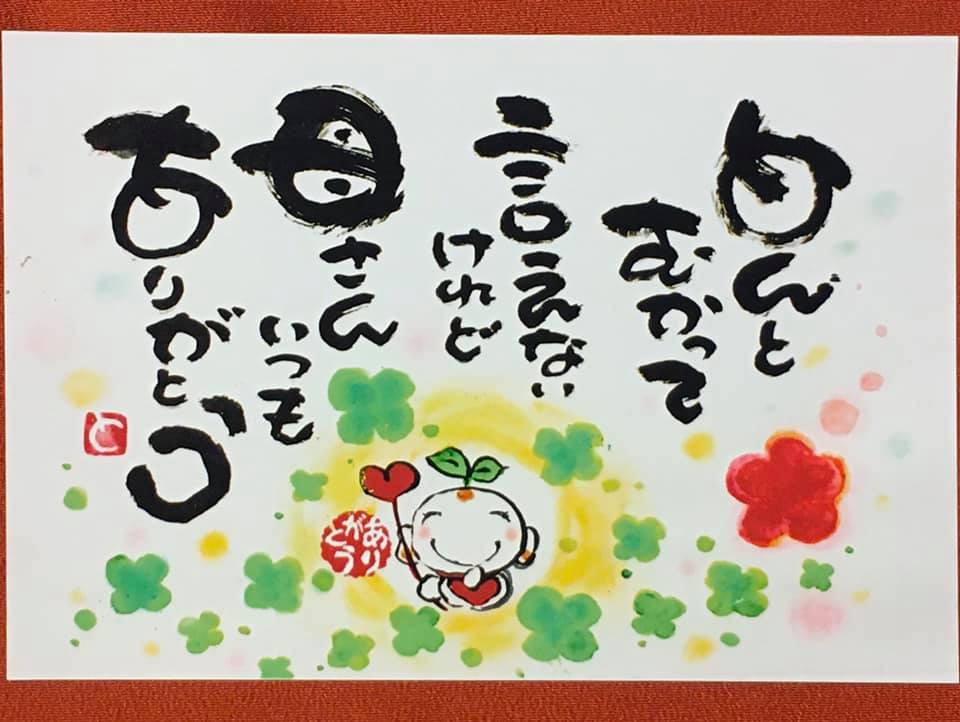 めんと
むかって
言えない
けれど
母さん
いつも
ありがとう
と
ありがとう